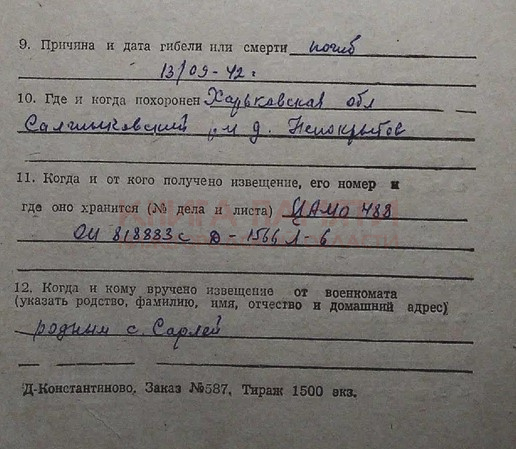 9. Причина и дата гибели или смерти погиб
13/09-42 г
10. Где и когда похоронен Харьковская обл
р-н д. Непокрытов
11. Когда и от кого получено извещение, его номер и
где оно хранится (№ дела и листа) ЦАМО 488
ОП 818883с Д-1566 Л-6
12. Когда и кому вручено извещение от военкомата
(указать родство, фамилию, имя, отчество и домашний адрес)
родным с. Сарлей
Д-Константиново, Заказ №587, Тираж 1500 экз.